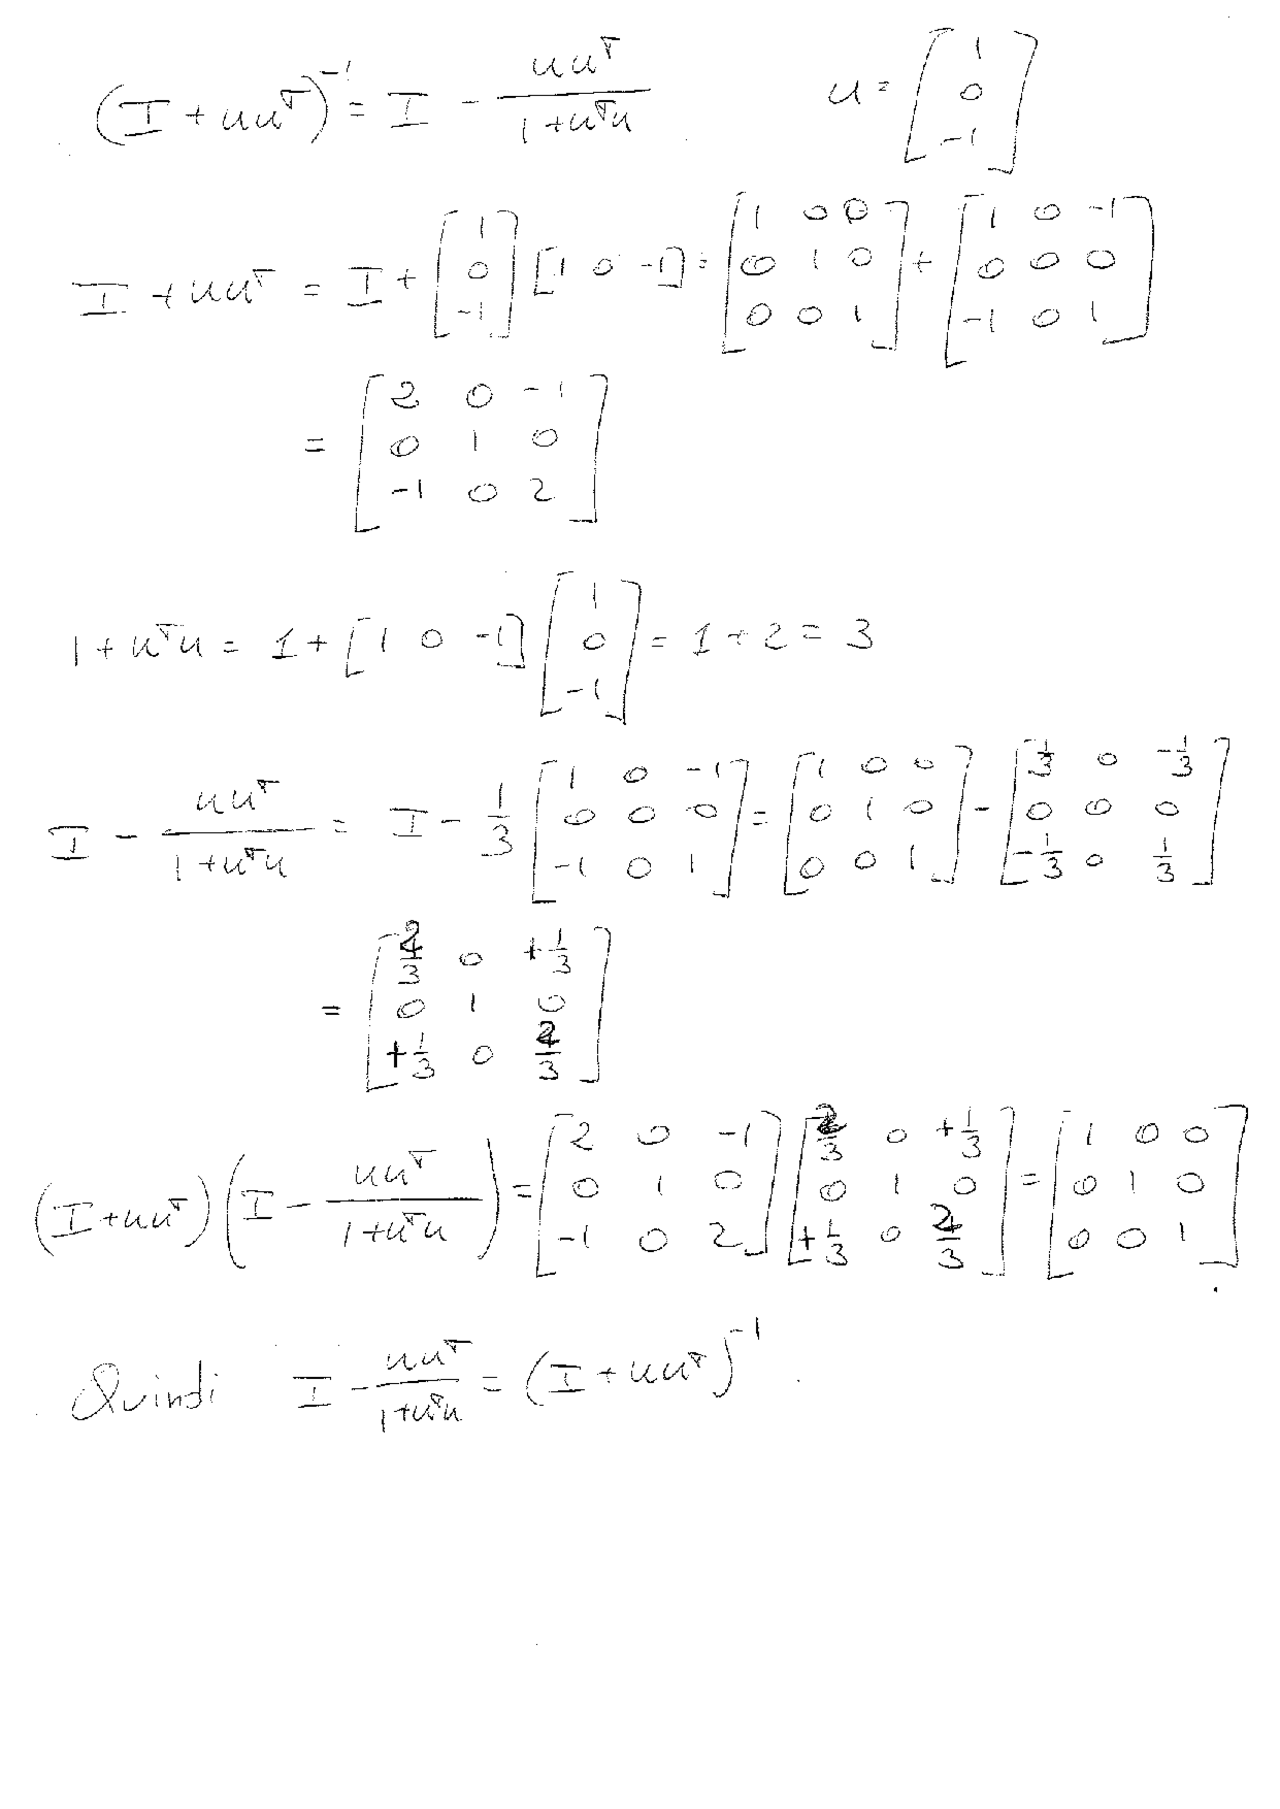 (I + uuᵀ)⁻¹ = I - uuᵀ/(1+uᵀu)    u = [1; 0; -1]
I + uuᵀ = I + [1; 0; -1] [1 0 -1] = [1 0 0; 0 1 0; 0 0 1] + [1 0 -1; 0 0 0; -1 0 1]
= [2 0 -1; 0 1 0; -1 0 2]
1 + uᵀu = 1 + [1 0 -1] [1; 0; -1] = 1 + 2 = 3
I - uuᵀ/(1+uᵀu) = I - 1/3 [1 0 -1; 0 0 0; -1 0 1] = [1 0 0; 0 1 0; 0 0 1] - [1/3 0 -1/3; 0 0 0; -1/3 0 1/3]
= [2/3 0 +1/3; 0 1 0; +1/3 0 2/3]
(I + uuᵀ)(I - uuᵀ/(1+uᵀu)) = [2 0 -1; 0 1 0; -1 0 2] [2/3 0 +1/3; 0 1 0; +1/3 0 2/3] = [1 0 0; 0 1 0; 0 0 1]
Quindi I - uuᵀ/(1+uᵀu) = (I + uuᵀ)⁻¹.